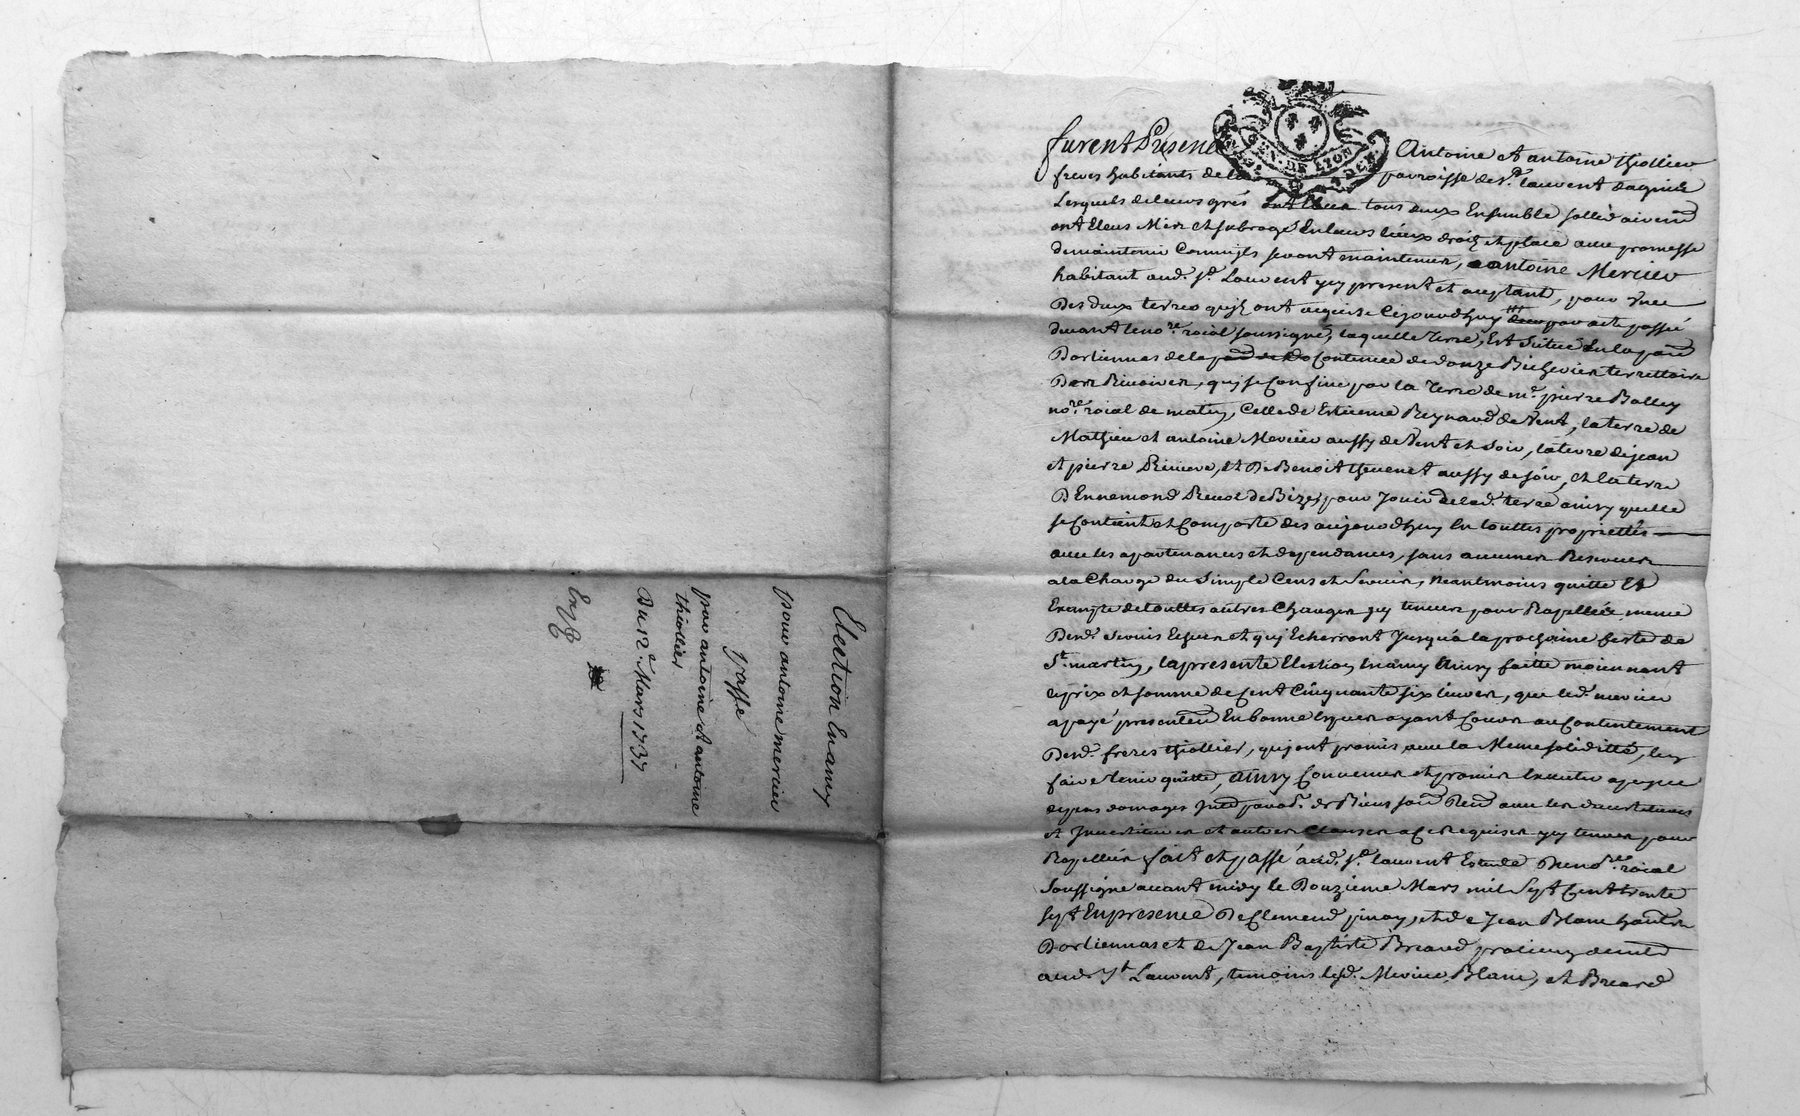 Election En amy
pour antoine mercier
passé
par antoine et antoine
thiollier
Du 12e Mars 1737
Exp
GEN. DE LYON
furent Presens Antoine et antoine thiollier
freres habitants de la parroisse de st laurent dagnis
Lesquels de leurs grés tous deux Ensemble sollidairemt
ont Eleus Mis et subrogé En leurs lieux droit et place avec promesse
de maintenir Comm'ils seront maintenus, antoine Mercier
habitant aud. st Laurent icy present et aceptant, pour Une
Des deux terres qu'ils ont acquise Cejourdhuy par acte passé
devant le nore roial soussigné, laquelle Terre, Est Situé En la parr
Dorliennas Contenue de donze Bicherées territtoire
qui se Confine par la Terre de me pierre Balley
nore roial de Celle de Estienne Reynaud de Vent, la terre de
Mathieu et antoine Mercier aussy de Vent et soir, la terre de jean
et pierre et De Benoit thevenet aussy de soir, et la terre
D'Ennemond de Bize, pour Jouir de lad. terre ainsy quelle
se Contient et Comporte des aujourdhuy En touttes proprietés
avec les apartenances et dependances, sans aucunes Reserves
a la Charge du Simple Cens et Servis, neantmoins quitte Et
Exempte de touttes autres Charges icy tenues pour Rapellée, meme
Desd. Servis Echeus et qui Echerront Jusqu'a la prochaine feste de
St martin, la presente Election En amy Ainsy faitte moiennant
le prix et somme de Cent Cinquante six livres, que led. mercier
a payé presentemt En bonnes Especes ayant Cours au Contentement
Desd. freres thiollier, qui ont promis avec la Meme soliditté, luy
faire Tenir quitte, ainsy Convenus et promis Executer a peyne
de tous domages Intts par obl. de Biens soum Renon avec les
et Investitures et autres Clauses a ce requises icy tenues pour
Rapellées fait et passé aud. st laurent Estude Du nore roial
soussigné avant midy le Douzieme Mars mil Sept Cent trente
sept En presence De Clemend pinay, et de Jean Blanc habitts
Dorliennas et de Jean Baptiste Breard praticien demt
aud. st Laurent, temoins lesd. Mercier, Blanc, et Breard